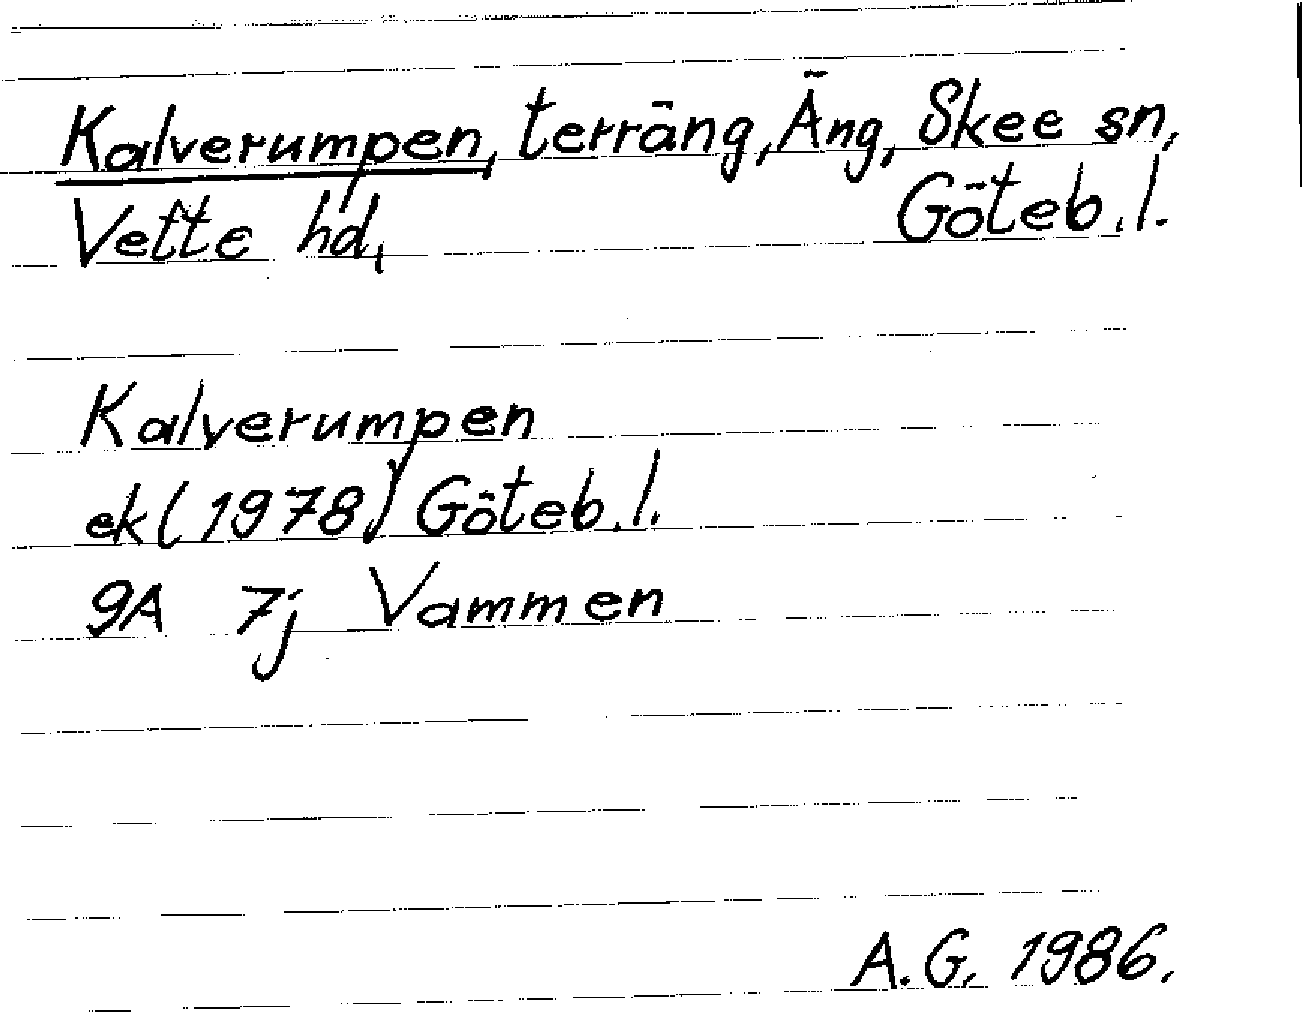 Kalverumpen, terräng, Äng, Skee sn,
Vette hd, Göteb. l.
Kalverumpen
ek (1978) Göteb. l.
9A 7j Vammen
A.G. 1986.